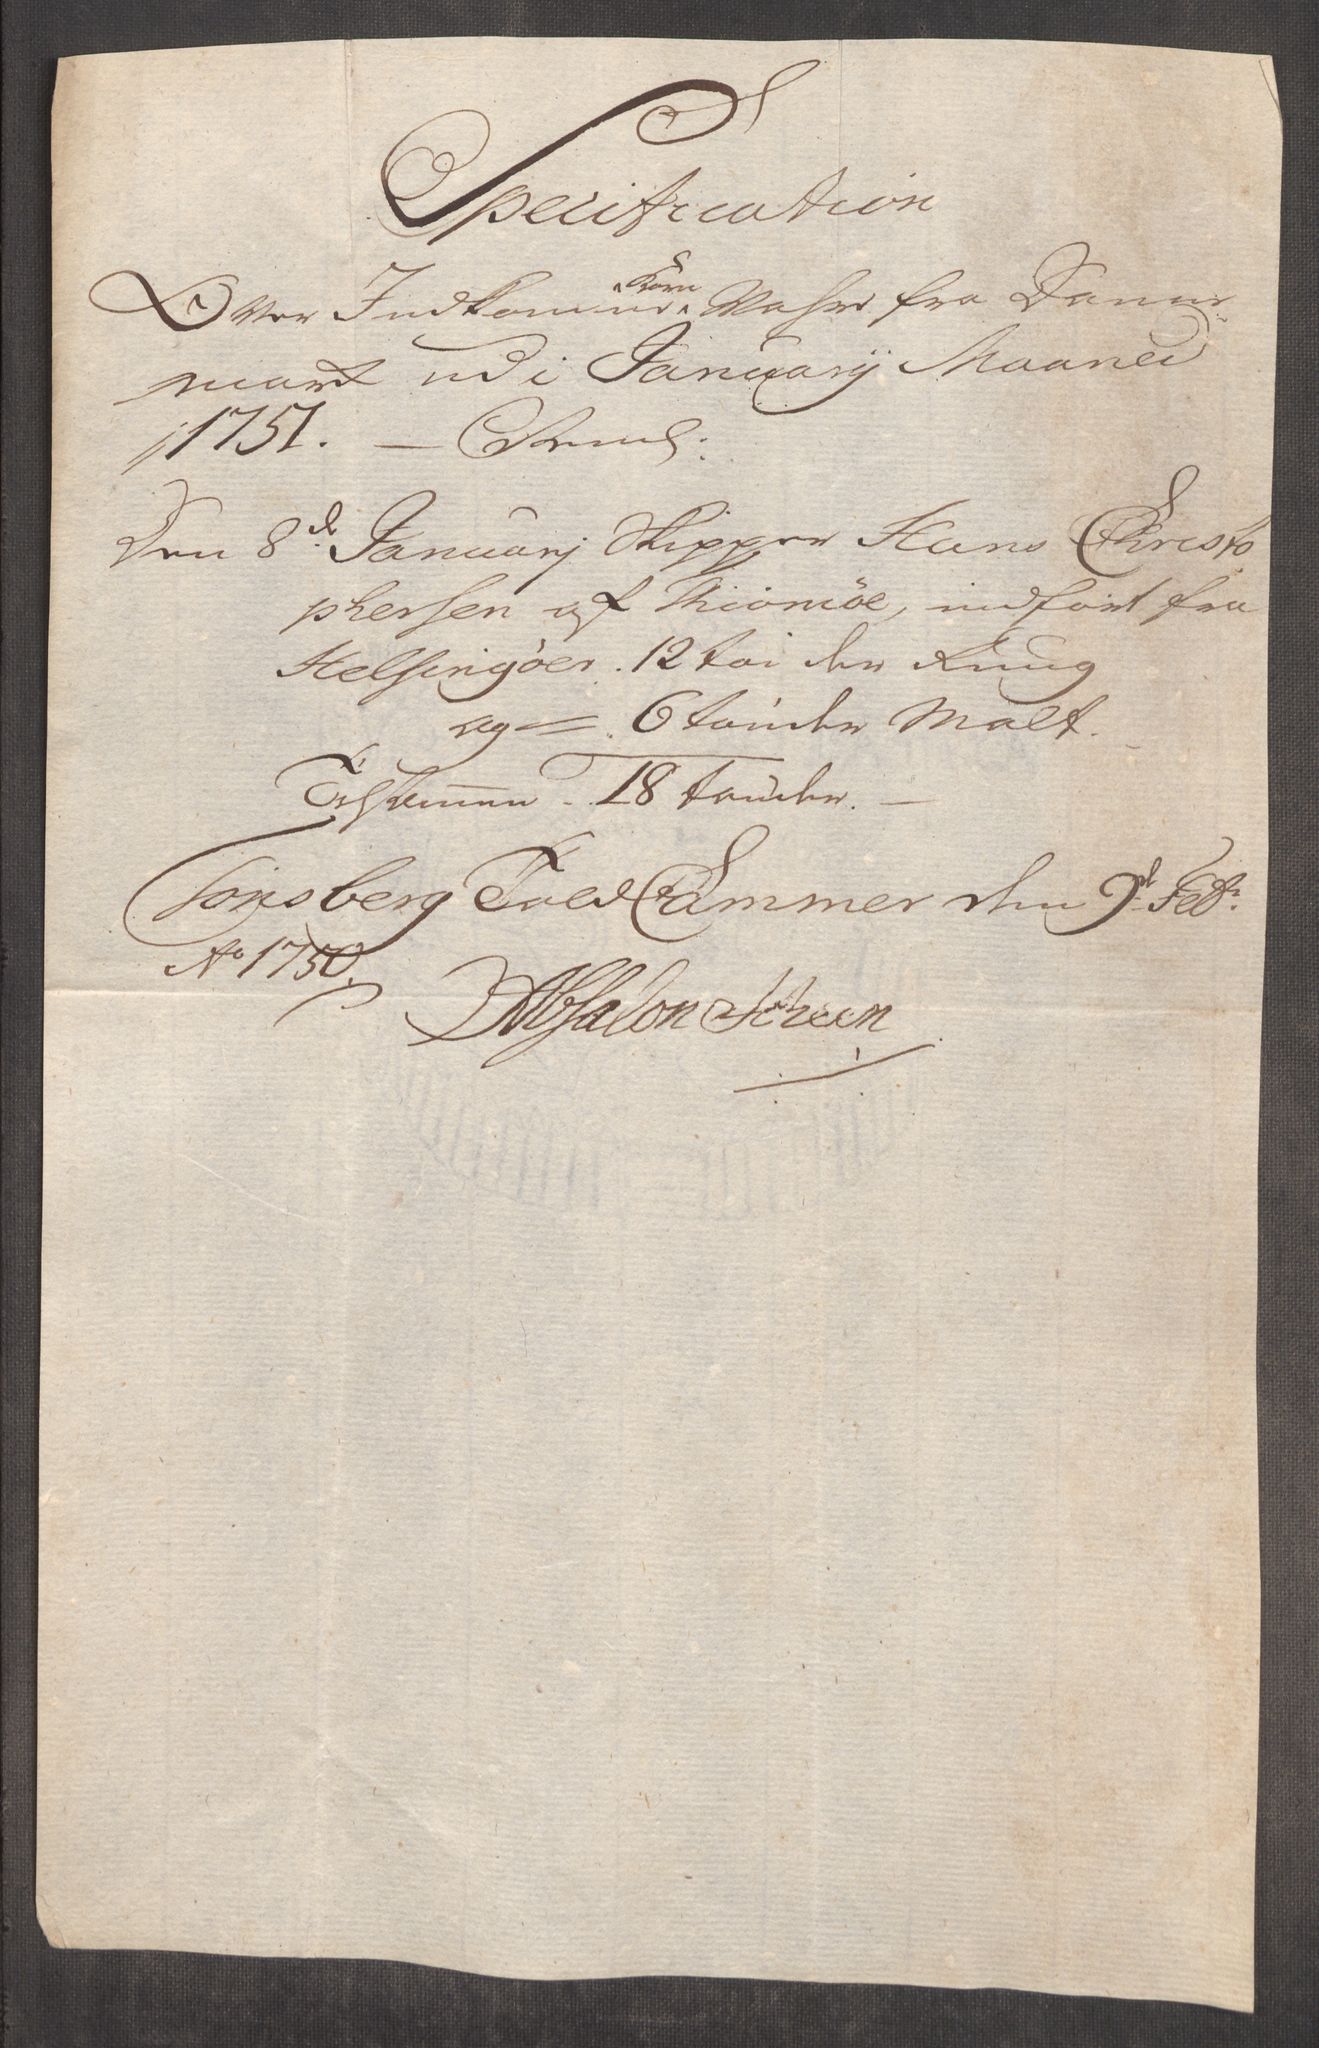 Specification
Over Indkomne Korn Vahre fra Danne-
mark udi Januarij Maaned
1751. — Nemlig:
Den 8de Januarij Skipper Hans Christo
phersen af Thiomöe, indfört fra
Helsingöer. 12 tönder Rug
og = 6 tönder Malt.
Tilsammen - 18 tönder. —
Tönsberg Told Cammer den 9de Febr:
Ao 1750.
Absalon Scheen